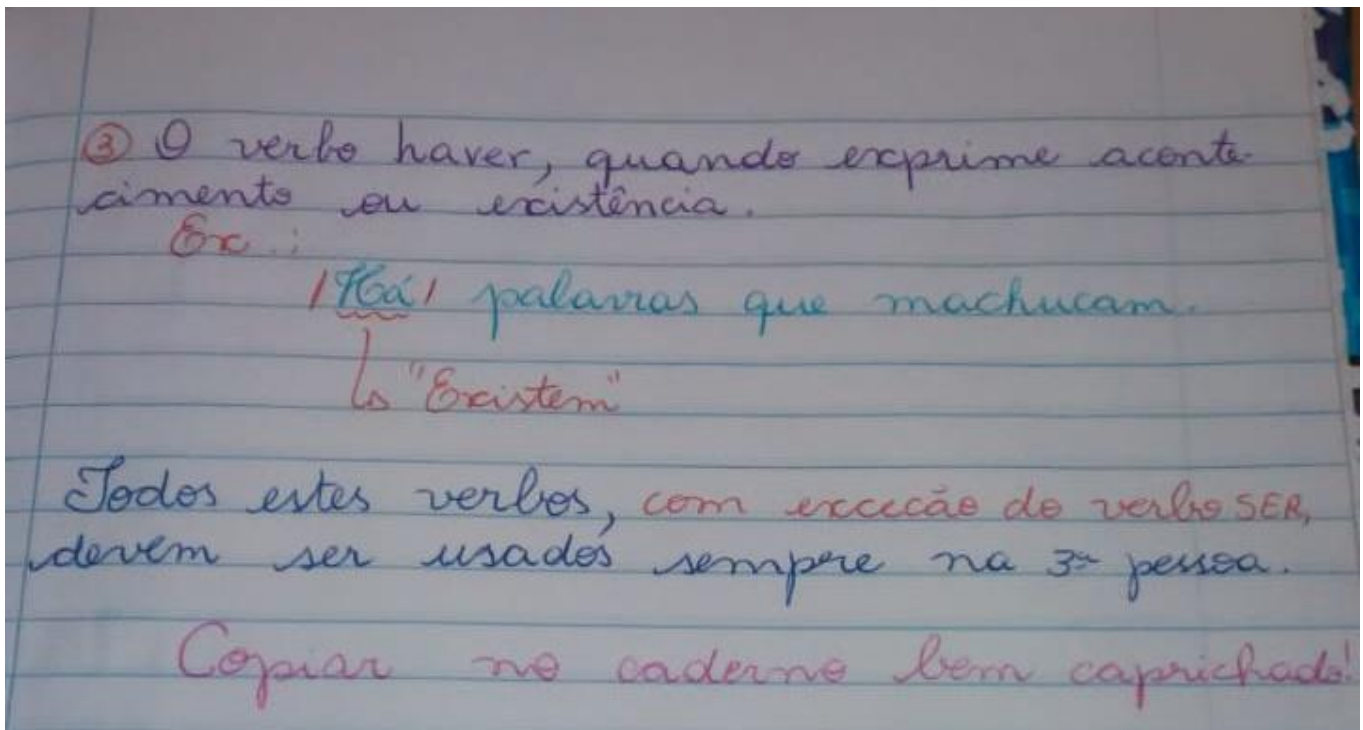 ③ O verbo haver, quando exprime aconte-
cimento ou existência.
Ex.:
/Há/ palavras que machucam.
↳ "Existem"
Todos estes verbos, com excecão do verbo SER,
devem ser usados sempre na 3ª pessoa.
Copiar no caderno bem caprichado!